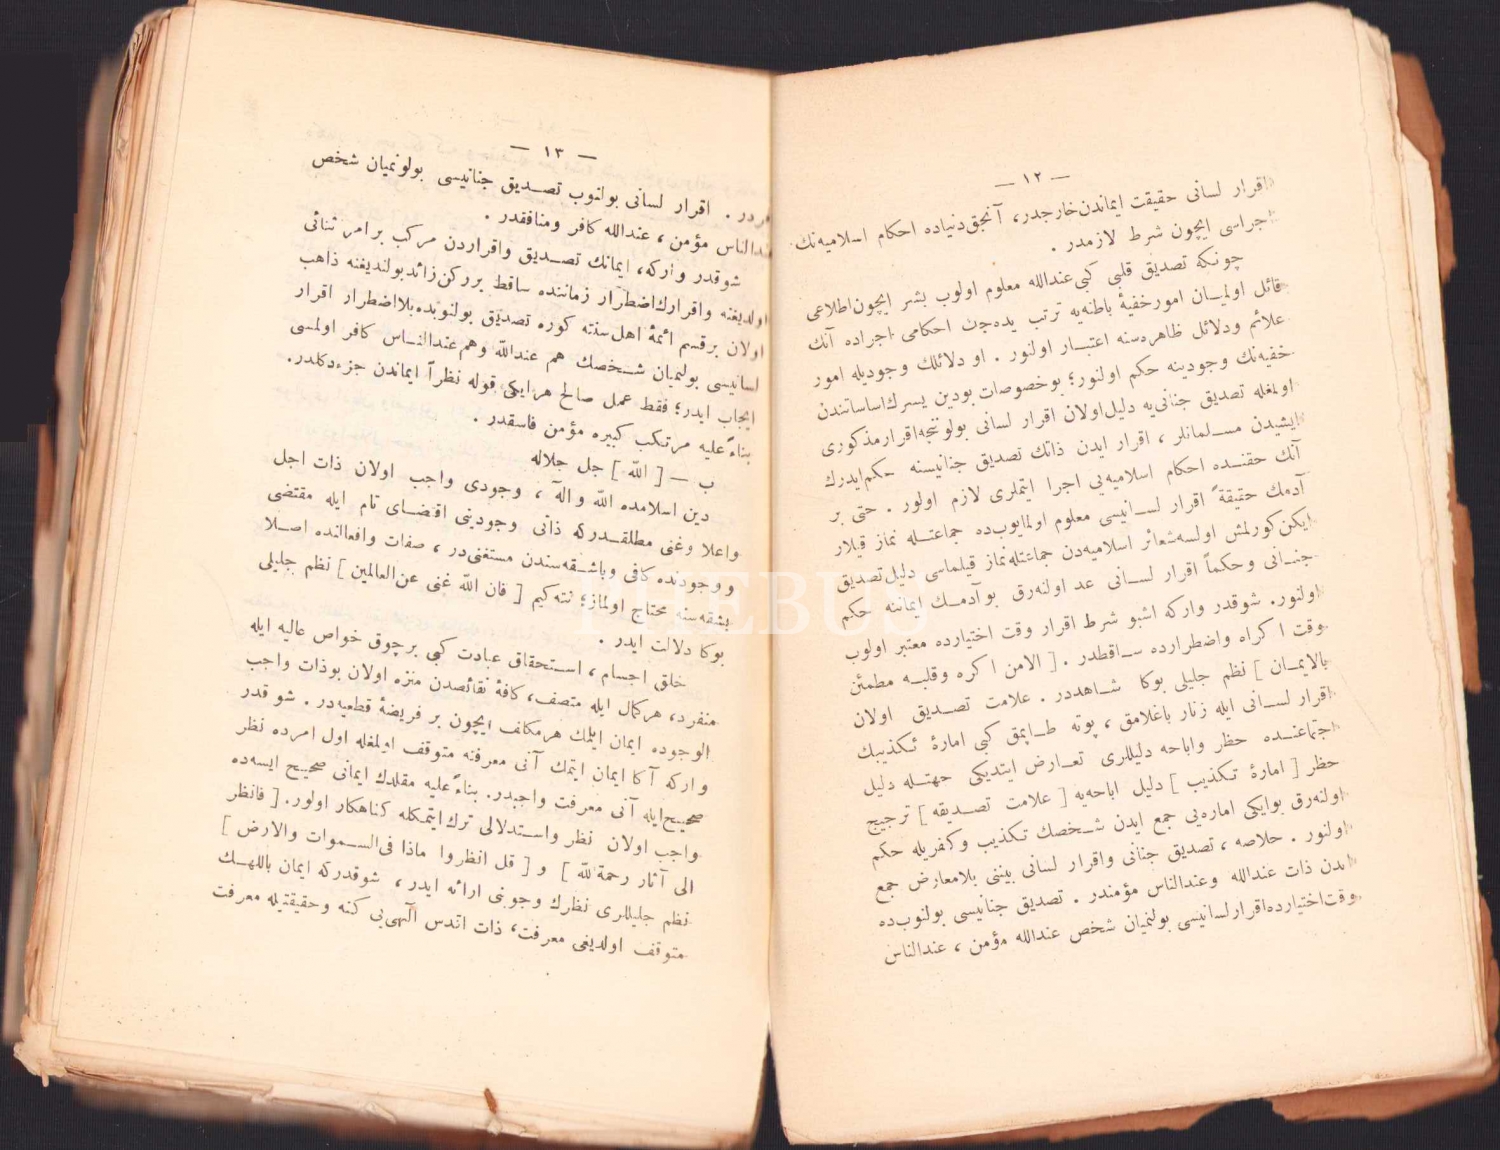 — ١٢ —
اقرار لسانی حقیقت ایماندن خارجدر، آنجق دنیاده احکام اسلامیه‌نك
اجراسی ایچون شرط لازمدر .
چونکه تصدیق قلبی کبی عندالله معلوم اولوب بشر ایچون اطلاعی
قائل اولمیان امور خفیۀ باطنه‌یه ترتب یده‌جك احکامی اجراده آنك
علائم ودلائل ظاهره‌سنه اعتبار اولنور . او دلائلك وجودیله امور
خفیه‌نك وجودینه حکم اولنور؛ بوخصوصات بودین یسرك اساساتندن
اولمغله تصدیق جنانی‌یه دلیل اولان اقرار لسانی بولوننجه اقرار مذکوری
ایشیدن مسلمانلر ، اقرار ایدن ذاتك تصدیق جنانیسنه حکم ایدرك
آنك حقنده احکام اسلامیه‌یی اجرا ایتملری لازم اولور . حتی بر
آدمك حقیقةً اقرار لسانیسی معلوم اولمایوب‌ده جماعتله نماز قیلار
ایکن کورلمش اولسه شعائر اسلامیه‌دن جماعتله نماز قیلماسی دلیل تصدیق
جنانی وحکماً اقرار لسانی عد اولنه‌رق بوآدمك ایماننه حکم
اولنور. شوقدر وارکه اشبو شرط اقرار وقت اختیارده معتبر اولوب
وقت اکراه واضطرارده ساقطدر . [ الامن اکره وقلبه مطمئن
بالایمان ] نظم جلیلی بوکا شاهددر . علامت تصدیق اولان
اقرار لسانی ایله زنار باغلامق ، پوته طاپمق کبی امارۀ تکذیبك
اجتماعنده حظر واباحه دلیللری تعارض ایتدیکی جهتله دلیل
حظر [ امارۀ تکذیب ] دلیل اباحه‌یه [ علامت تصدیقه ] ترجیح
اولنه‌رق بوایکی اماره‌یی جمع ایدن شخصك تکذیب وکفریله حکم
اولنور . خلاصه ، تصدیق جنانی واقرار لسانی بیننی بلامعارض جمع
ایدن ذات عندالله وعندالناس مؤمندر . تصدیق جنانیسی بولنوب‌ده
وقت اختیارده اقرار لسانیسی بولنمیان شخص عندالله مؤمن ، عندالناس
— ١٣ —
. اقرار لسانی بولنوب تصدیق جنانیسی بولونمیان شخص
عندالناس مؤمن ، عندالله کافر ومنافقدر .
شوقدر وارکه، ایمانك تصدیق واقراردن مرکب برامر ثنائی
اولدیغنه واقرارك اضطرار زماننده ساقط بررکن زائد بولندیغنه ذاهب
اولان برقسم ائمۀ اهل سنته کوره تصدیق بولنوبده بلااضطرار اقرار
لسانیسی بولنمیان شخصك هم عندالله وهم عندالناس کافر اولمسی
ایجاب ایدر؛ فقط عمل صالح هرایکی قوله نظراً ایماندن جزء دکلدر.
بناءً علیه مرتکب کبیره مؤمن فاسقدر .
ب — [ الله ] جل جلاله
دین اسلامده الله واله ، وجودی واجب اولان ذات اجل
واعلا وغنی مطلقدرکه ذاتی وجودینی اقتضای تام ایله مقتضی
ووجودنده کافی وباشقه‌سندن مستغنی‌در ، صفات وافعالنده اصلا
بشقه‌سنه محتاج اولماز؛ نته‌کیم [ فان الله غنی عن العالمین ] نظم جلیلی
بوکا دلالت ایدر .
خلق اجسام ، استحقاق عبادت کبی برچوق خواص عالیه ایله
منفرد، هرکمال ایله متصف، کافۀ نقائصدن منزه اولان بوذات واجب
الوجوده ایمان ایلمك هرمکلف ایچون بر فریضۀ قطعیه‌در . شوقدر
وارکه آکا ایمان ایتمك آنی معرفته متوقف اولمغله اول امرده نظر
صحیح ایله آنی معرفت واجبدر. بناءً علیه مقلدك ایمانی صحیح ایسه‌ده
واجب اولان نظر واستدلالی ترك ایتمکله کناهکار اولور. [ فانظر
الی آثار رحمةالله ] و [ قل انظروا ماذا فی السموات والارض ]
نظم جلیللری نظرك وجوبنی ارائه ایدر ، شوقدرکه ایمان باللهك
متوقف اولدیغی معرفت، ذات اقدس آلهی‌یی کنه وحقیقتیله معرفت